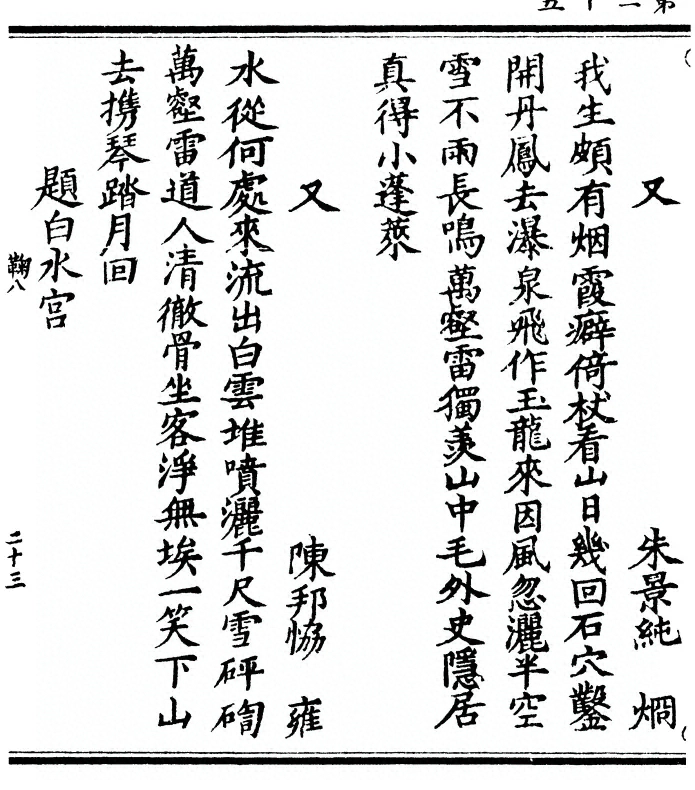 又　朱景純　烱
我生頗有烟霞癖倚杖看山日幾回石穴鑿
開丹鳳去瀑泉飛作玉龍來因風忽灑半空
雪不雨長鳴萬壑雷獨羨山中毛外史隱居
真得小蓬萊
又　陳邦協　雍
水從何處來流出白雲堆噴灑千尺雪砰訇
萬壑雷道人清徹骨坐客淨無埃一笑下山
去携琴踏月回
題白水宮
鞠八　二十三